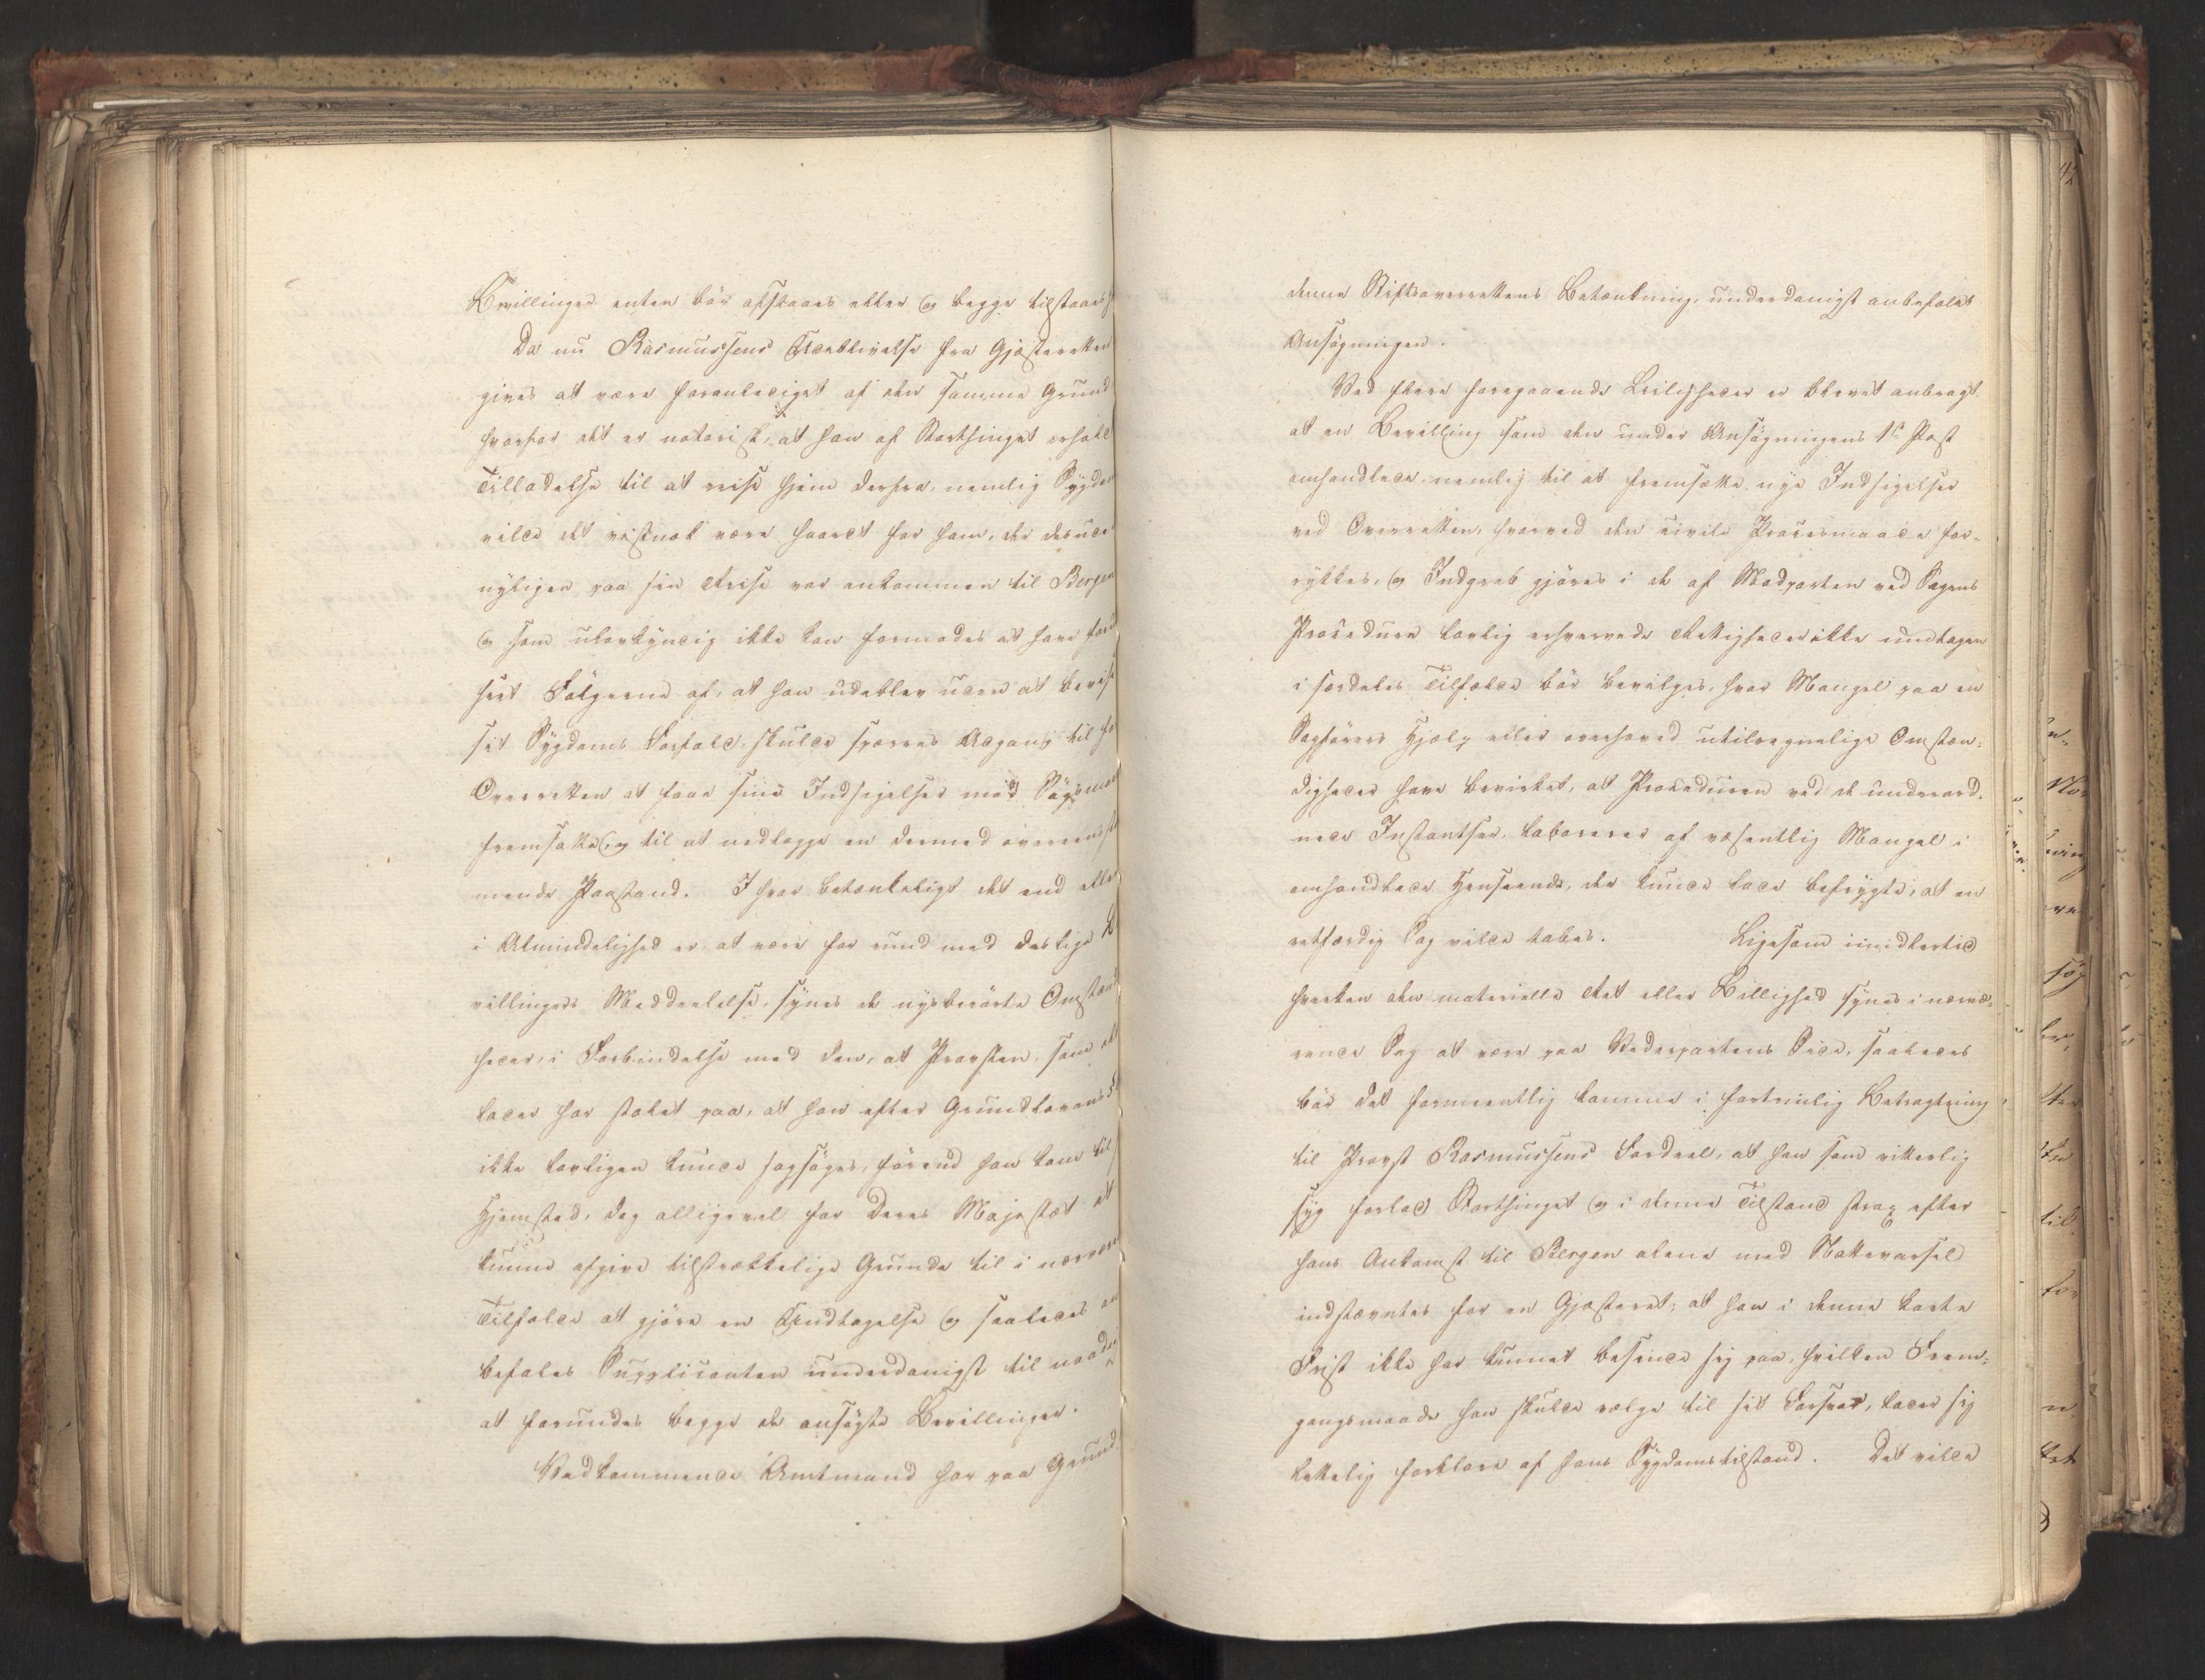 Bevillinger enten bör afslaaes eller og begge tilstaaes
Da nu Rasmussens Udeblivelse fra Gjæsteretten
gives at være foranlediget af den samme Grund
hvorfor det er notorisk, at han af Storthinget erholdt
Tilladelse til at reise hjem derfra, nemlig Sygdom
vilde det vistnok være haardt for ham, der desuden
nyligen paa sin Reise var ankommen til Bergen
og som ulovkyndig ikke kan formodes at have forud
seet Fölgerne af, at han udeblev uden at bevise
sit Sygdoms Forfald, skulde sperres Adgang til for
Overretten at faae sine Indsigelser mod Sögsmaalet
fremsatte, og til at nedlægge en dermed overeensstem
mende Paastand. I hvor betænkeligt det end ellers
i Almindelighed er at være for rund med deslige Be
villingers Meddeelelse, synes de nysberörte Omstændig
heder, i Forbindelse med den, at Provsten, som alle
rede har paa, at han efter Grundlovens §
ikke lovligen kunde sagsöges, förend han kom til sit
Hjemsted, dog alligevel for Deres Majestæt at
kunne afgive tilstrækkelige Grunde til i nærværende
Tilfælde at gjöre en Undtagelse og saaledes an
befales Supplicanten underdanigst til naadigst
at forundes begge de ansögte Bevillinger.
Vedkommende Amtmand har paa Grund
denne Stiftsoverrettens Betænkning, underdanigst anbefalet
Ansögningen.
Ved flere foregaaende Leiligheder er blevet anbragt,
at en Bevilling som den under Ansögningens 1ste Post
omhandlede, nemlig til at fremsætte nye Indsigelser
ved Overretten, hvorved den civile Procesmaade for-
rykkes, og Indgreb gjöres i de af Modparten ved Sagens
Procedure lovlig erhvervede Rettigheder ikke undtagen
i særdeles Tilfælde bör bevilges, hvor Mangel paa en
Sagförers Hjælp eller overhoved utilregnelige Omstæn-
digheder have bevirket, at Proceduren ved de underord-
nede Instantser, laborerer af væsentlig Mangel i
omhandlede Henseende, der kunde lade befrygte, at en
retfærdig Sag vilde tabes. Ligesom imidlertid
hverken den materielle Ret eller Billighed synes i nærvæ-
rende Sag at være paa Vederpartens Side, saaledes
bör det formeentlig komme i fortrinlig Betragtning
til Provst Rasmussens Fordeel, at han som vitterlig
syg forlod Storthinget og i denne Tilstand strax efter
hans Ankomst til Bergen alene med Nattevarsel
indstævntes for en Gjæsteret; at han i denne korte
Frist ikke har kunnet besinde sig paa, hvilken Frem-
gangsmaade han skulde vælge til sit Forsvar, lader sig
lettelig forklare af hans Sygdomstilstand. Det vilde